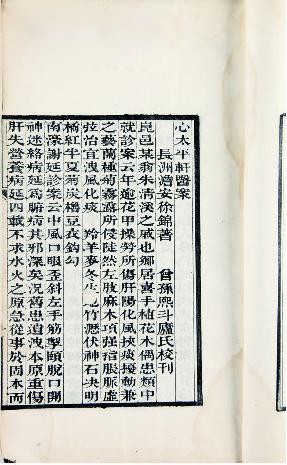 心太平軒醫案
長洲澹安徐錦著　曾孫熙斗廬氏校刊
崑邑某翁朱清溪之戚也鄉居喜手植花木偶患類中
就診案云年逾花甲操勞所傷肝陽化風挾痰擾動兼
之藝蘭種菊霧露所侵陡然左肢麻木項强瘖脹脈虛
弦治宜洩風化痰　羚羊麥冬生地竹瀝伏神石決明
橘紅半夏菊炭穭豆衣鈎勾
南濠謝延診案云中風口眼歪斜左手筋掣頤脫口開
神迷絡病延爲腑病其邪深矣況舊患遺洩本原重傷
肝失營養病延四載不求水火之原急從事於固本而